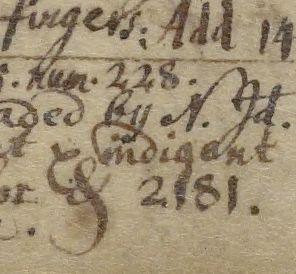 fingers; Add 14
. num. 228.
aded by N. Jd.
t & indigent
or & 2181.